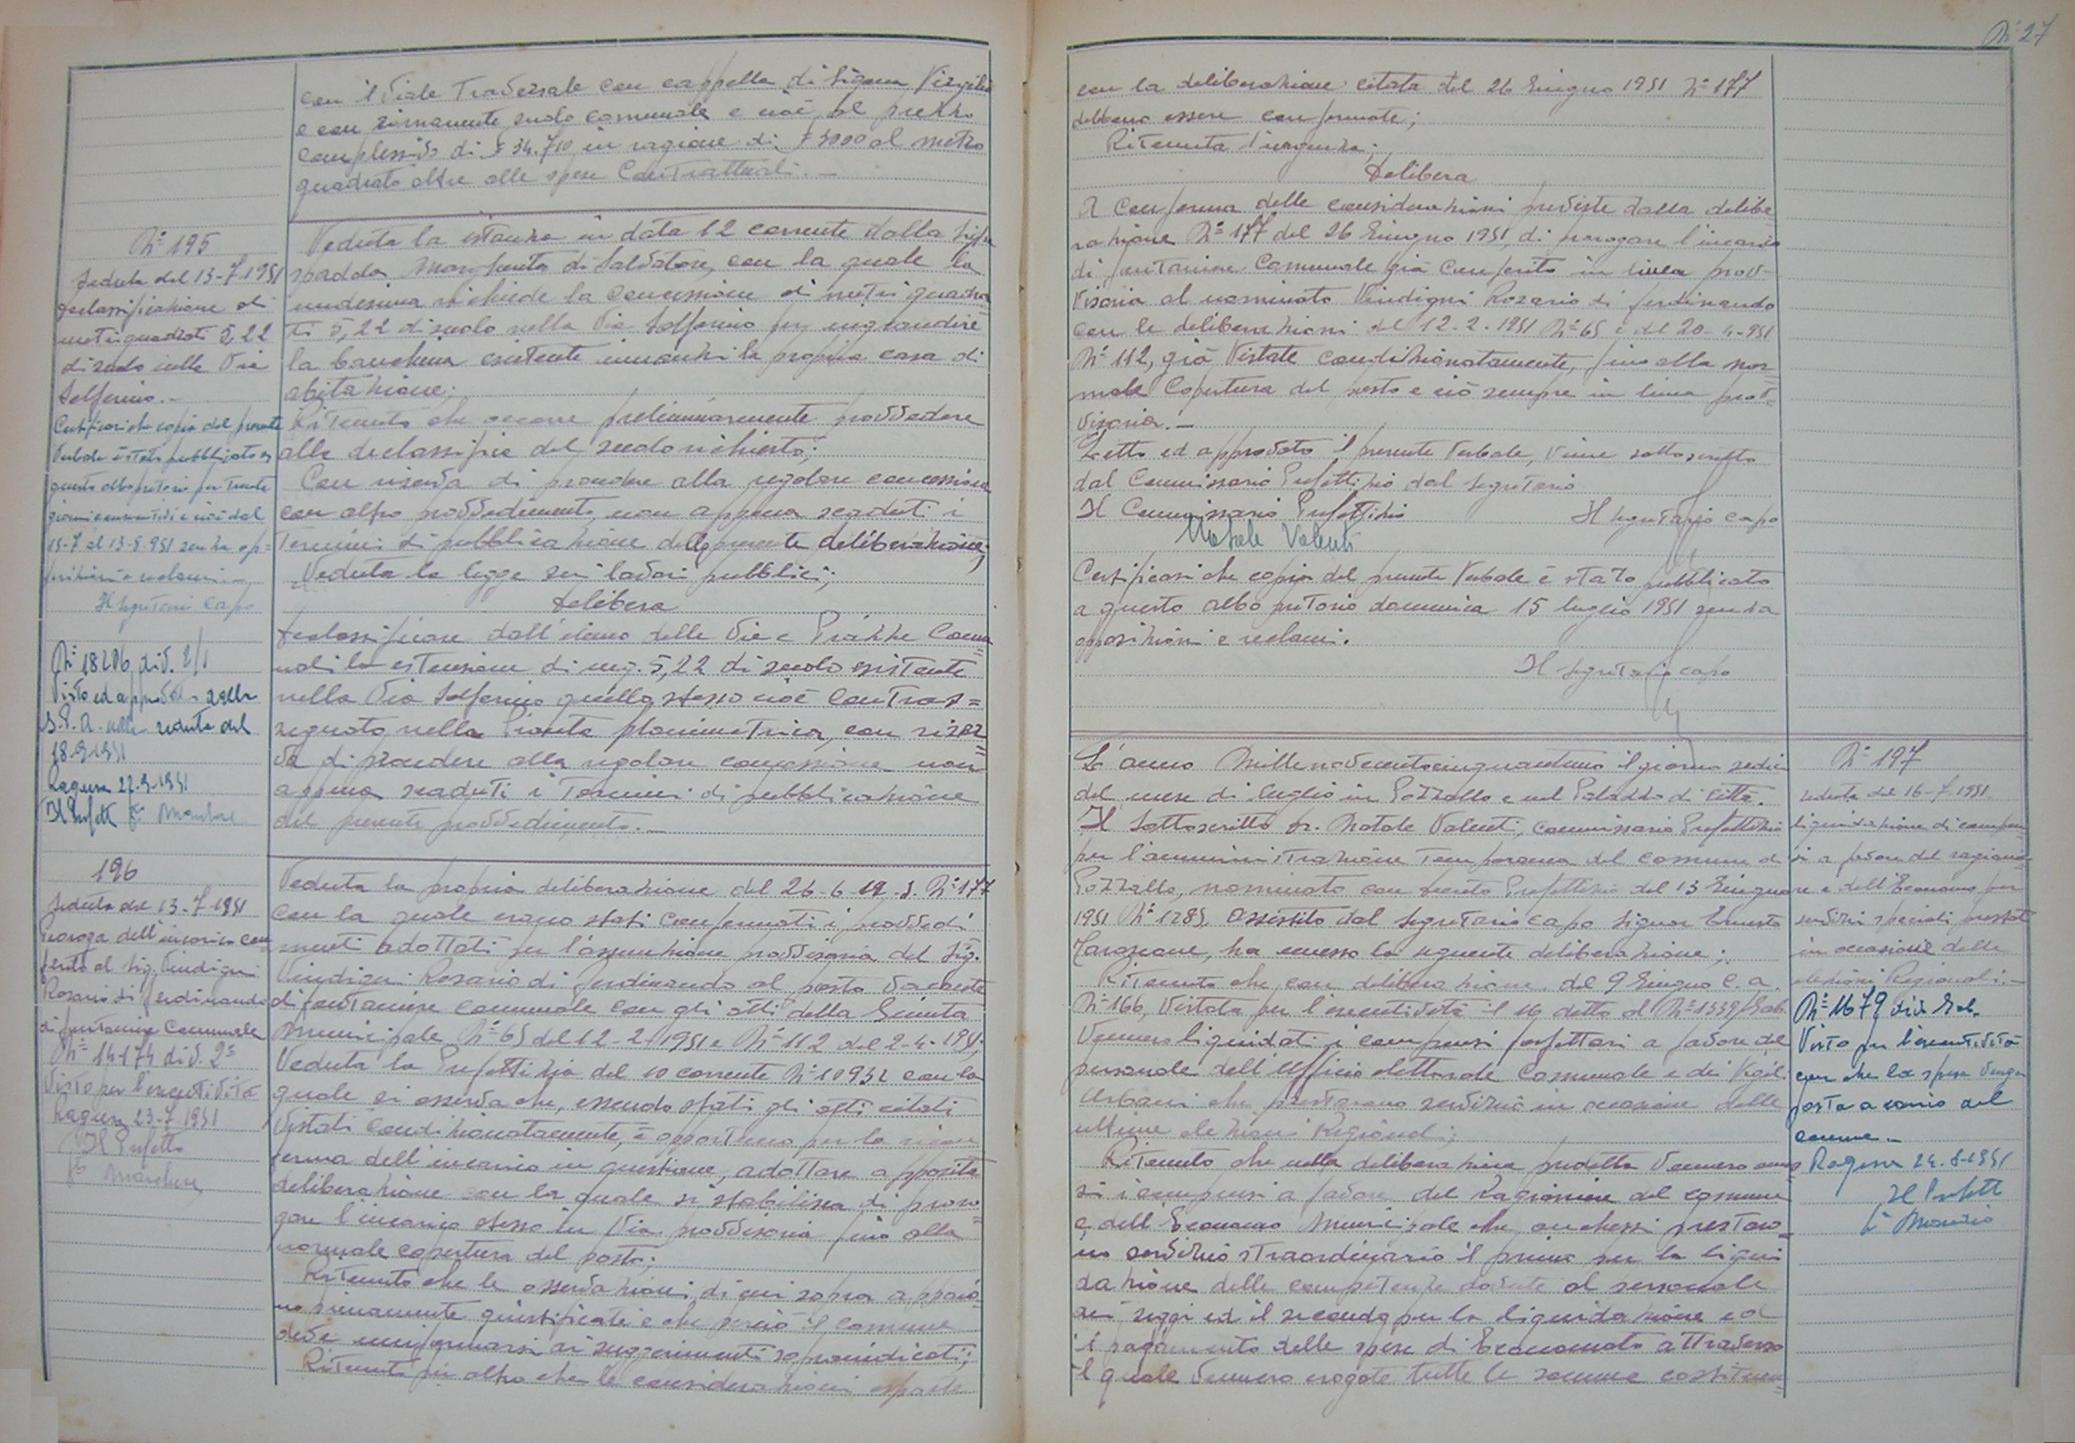 Nº 27
con il Viale Trasversale con cappella di Sigona Virgilio
e con rimanente suolo comunale e cioè al prezzo
complessivo di £ 34.710, in ragione di £ 3000 al metro
quadrato oltre alle spese Contrattuali. —
Nº 195
Seduta del 13-7-1951
Declassificazione di
metri quadrati 5,22
di suolo nella Via
Solferino. —
Certificasi che copia del presente
Verbale è stato pubblicato a
questo albo pretorio per trenta
giorni consecutivi e cioè dal
15-7 al 13-8-951 senza op=
posizioni e reclami. —
Il Segretario Capo
Nº 18206 div. 2/1
Visto ed approvato dalla
G.P.A. nella seduta del
18-9-1951
Ragusa 22-9-1951
Il Prefetto
Veduta la istanza in data 12 corrente dalla Sig.ra
Spadola Margherita di Salvatore, con la quale la
medesima richiede la concessione di metri quadra
ti 5,22 di suolo nella Via Solferino per ingrandire
la banchina esistente innanzi la propria casa di
abitazione;
Ritenuto che occorre preliminarmente provvedere
alla declassifica del suolo richiesto;
Con riserva di procedere alla regolare concessione
con altro provvedimento, non appena scaduti i
termini di pubblicazione della presente deliberazione;
Veduta la legge sui lavori pubblici;
Delibera
Declassificare dall'elenco delle Vie e Piazze Comu=
nali la estensione di mq. 5,22 di suolo esistente
nella Via Solferino quello stesso cioè contras=
segnato nella Pianta planimetrica, con riser=
va di procedere alla regolare concessione non
appena scaduti i termini di pubblicazione
del presente provvedimento. —
196
Seduta del 13-7-1951
Proroga dell'incarico con
ferito al Sig. Vindigni
Rosario di Ferdinando
di fontaniere Comunale
Nº 14174 div. 2ª
Visto per l'esecutività
Ragusa 23-7-1951
Il Prefetto
Veduta la propria deliberazione del 26-6-u.s. Nº 177
con la quale erano stati confermati i provvedi
menti adottati per l'assunzione provvisoria del Sig.
Vindigni Rosario di Ferdinando al posto vacante
di fontaniere comunale con gli atti della Giunta
Municipale Nº 65 del 12-2-1951 e Nº 112 del 2-4-1951;
Veduta la Prefettizia del 10 corrente Nº 10952 con la
quale si osserva che, essendo stati gli atti citati
vistati condizionatamente, è opportuno per la ricon
ferma dell'incarico in questione, adottare apposita
deliberazione con la quale si stabilisca di proro=
gare l'incarico stesso in via provvisoria fino alla
normale copertura del posto;
Ritenuto che le osservazioni di cui sopra appaio=
no pienamente giustificate e che perciò il comune
deve uniformarsi ai suggerimenti sopraindicati;
Ritenuto per altro che le considerazioni esposte
con la deliberazione citata del 26 Giugno 1951 Nº 177
debbono essere confermate;
Ritenuta l'urgenza;
Delibera
A conferma delle considerazioni previste dalla delibe
razione Nº 177 del 26 Giugno 1951, di prorogare l'incarico
di fontaniere Comunale già conferito in linea prov=
visoria al nominato Vindigni Rosario di Ferdinando
con le deliberazioni del 12-2-1951 Nº 65 e del 20-4-951
Nº 112, già vistate condizionatamente, fino alla nor=
male copertura del posto e ciò sempre in linea prov=
visoria. —
Letto ed approvato il presente Verbale, viene sottoscritto
dal Commissario Prefettizio dal Segretario
Il Commissario Prefettizio Il Segretario Capo
Natale Valenti
Certificasi che copia del presente Verbale è stato pubblicato
a questo albo pretorio domenica 15 luglio 1951 senza
opposizioni e reclami.
Il Segretario capo
L'anno Millenovecentocinquantuno il giorno sedici
del mese di luglio in Pozzallo e nel Palazzo di Città.
Il Sottoscritto Dr. Natale Valenti, Commissario Prefettizio
per l'amministrazione temporanea del comune di
Pozzallo, nominato con decreto Prefettizio del 13 Giugno
1951 Nº 1285, assistito dal Segretario capo Signor Ernesto
ha emesso la seguente deliberazione;
Ritenuto che con deliberazione del 9 Giugno c.a.
Nº 166, vistata per l'esecutività il 16 detto al Nº 1339/Gab.
vennero liquidati i compensi forfettari a favore del
personale dell'Ufficio elettorale Comunale e dei Vigili
Urbani che prestarono servizio in occasione delle
ultime elezioni Regionali;
Ritenuto che nella deliberazione predetta vennero omes
si i compensi a favore del Ragioniere del comune
e dell'Economo Municipale che anch'essi prestaro=
no servizio straordinario il primo per la liqui
dazione delle competenze dovute al personale
dei seggi ed il secondo per la liquidazione ed
il pagamento delle spese di Economato attraverso
il quale vennero erogate tutte le somme costituen=
Nº 197
Seduta del 16-7-1951
Liquidazione di compen
si a favore del ragionie
re e dell'Economo per
servizi speciali prestati
in occasione delle
elezioni Regionali. —
Nº 1679 div. Gab.
Visto per l'esecutività
con che la spesa venga
posta a carico del
comune. —
Ragusa 24-8-1951
Il Prefetto